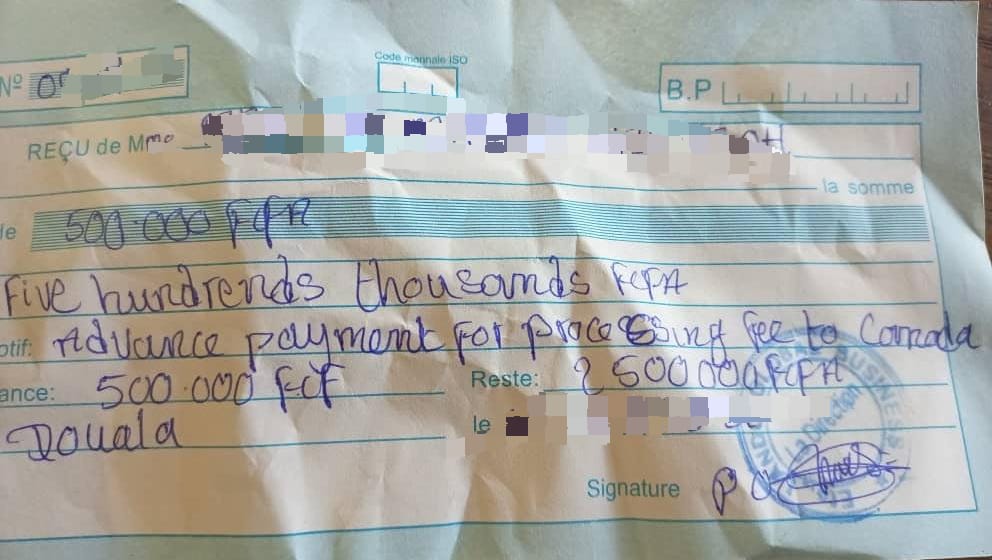 Code monnaie ISO
Nº
B.P
REÇU de Mme
la somme
500.000 FCFA
Five hundrends thousands FCFA
otif: Advance payment for processing fee to Canada
ance: 500.000 FCF Reste: 2500000 FCFA
Douala le
Signature PO
La Direction